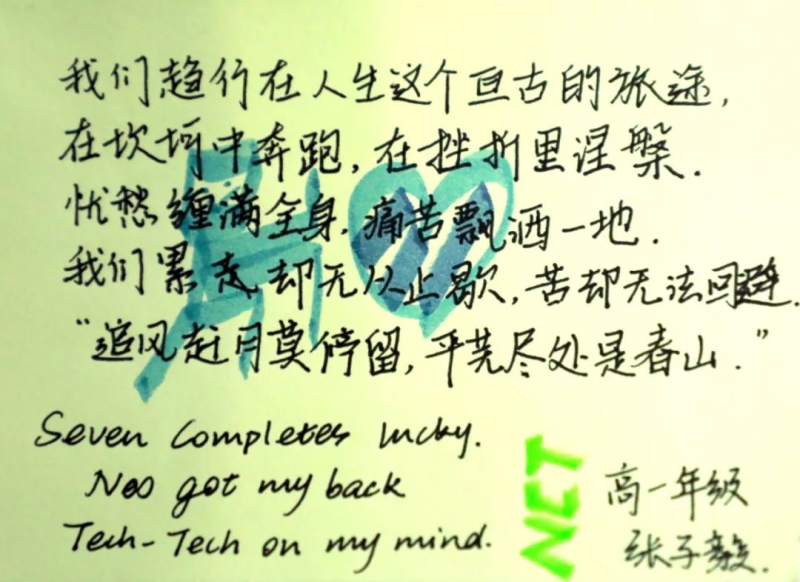 我们趋行在人生这个亘古的旅途,
在坎坷中奔跑,在挫折里涅槃.
忧愁缠满全身,痛苦飘洒一地.
我们累 却无从止歇,苦却无法回避.
“追风赶月莫停留,平芜尽处是春山.”
Seven Completes lucky.
Neo got my back
Tech-Tech on my mind.
NCT
高一年级
张子毅.